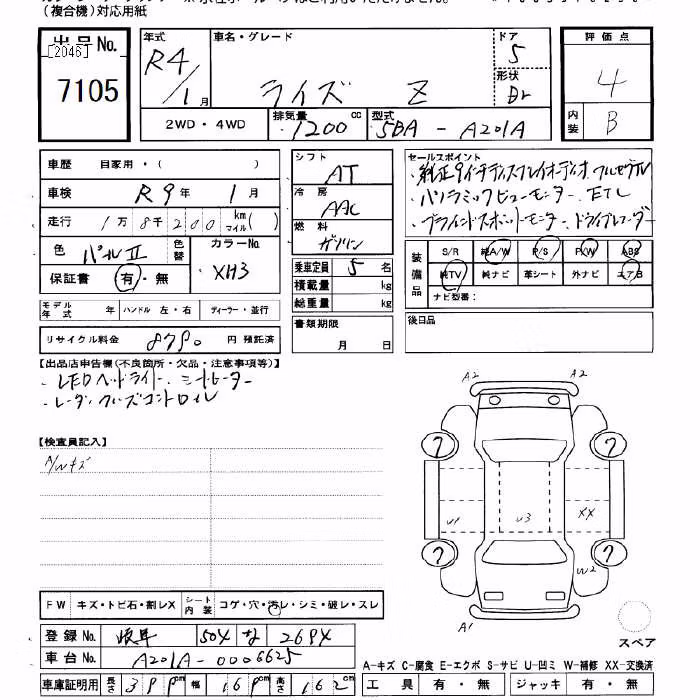 (複合機)対応用紙
出品 No.
[2046]
7105
年式 R4/1月
車名・グレード
ライズ Z
ドア 5
形状 Br
評価点 4
内装 B
2WD・4WD
排気量 1200 cc
型式 5BA - A201A
車歴 自家用・( )
車検 R9年 1月
走行 1万8千200 km マイル( )
色 パールⅡ 色替
カラーNo. XH3
保証書 有・無
モデル年式 年 ハンドル 左・右 ディーラー・並行
リサイクル料金 8790 円 預託済
シフト AT
冷房 AAC
燃料 ガソリン
乗車定員 5 名
積載量 kg
総重量 kg
書類期限
月 日
セールスポイント
・純正9インチディスプレイオーディオ フルセグTV
・パノラミックビューモニター、ETC
・ブラインドスポットモニター、ドライブレコーダー
装備品
S/R 純A/W P/S P/W ABS
純TV 純ナビ 革シート 外ナビ エアB
ナビ型番:
後日品
【出品店申告欄(不良箇所・欠品・注意事項等)】
・LEDヘッドライト、シートヒーター
・レーダークルーズコントロール
【検査員記入】
A/Wキズ
A2 A2
? ?
U1 U3 XX
? ?
W2
A1
スペア
FW キズ・トビ石・割レX シート内装 コゲ・穴・汚レ・シミ・破レ・スレ
登録 No. 岐阜 504 な 2694
車台 No. A201A-0006625
車庫証明用 長さ 399 cm 幅 169 cm 高さ 162
A-キズ C-腐食 E-エクボ S-サビ U-凹ミ W-補修 XX-交換済
工具 有・無 ジャッキ 有・無